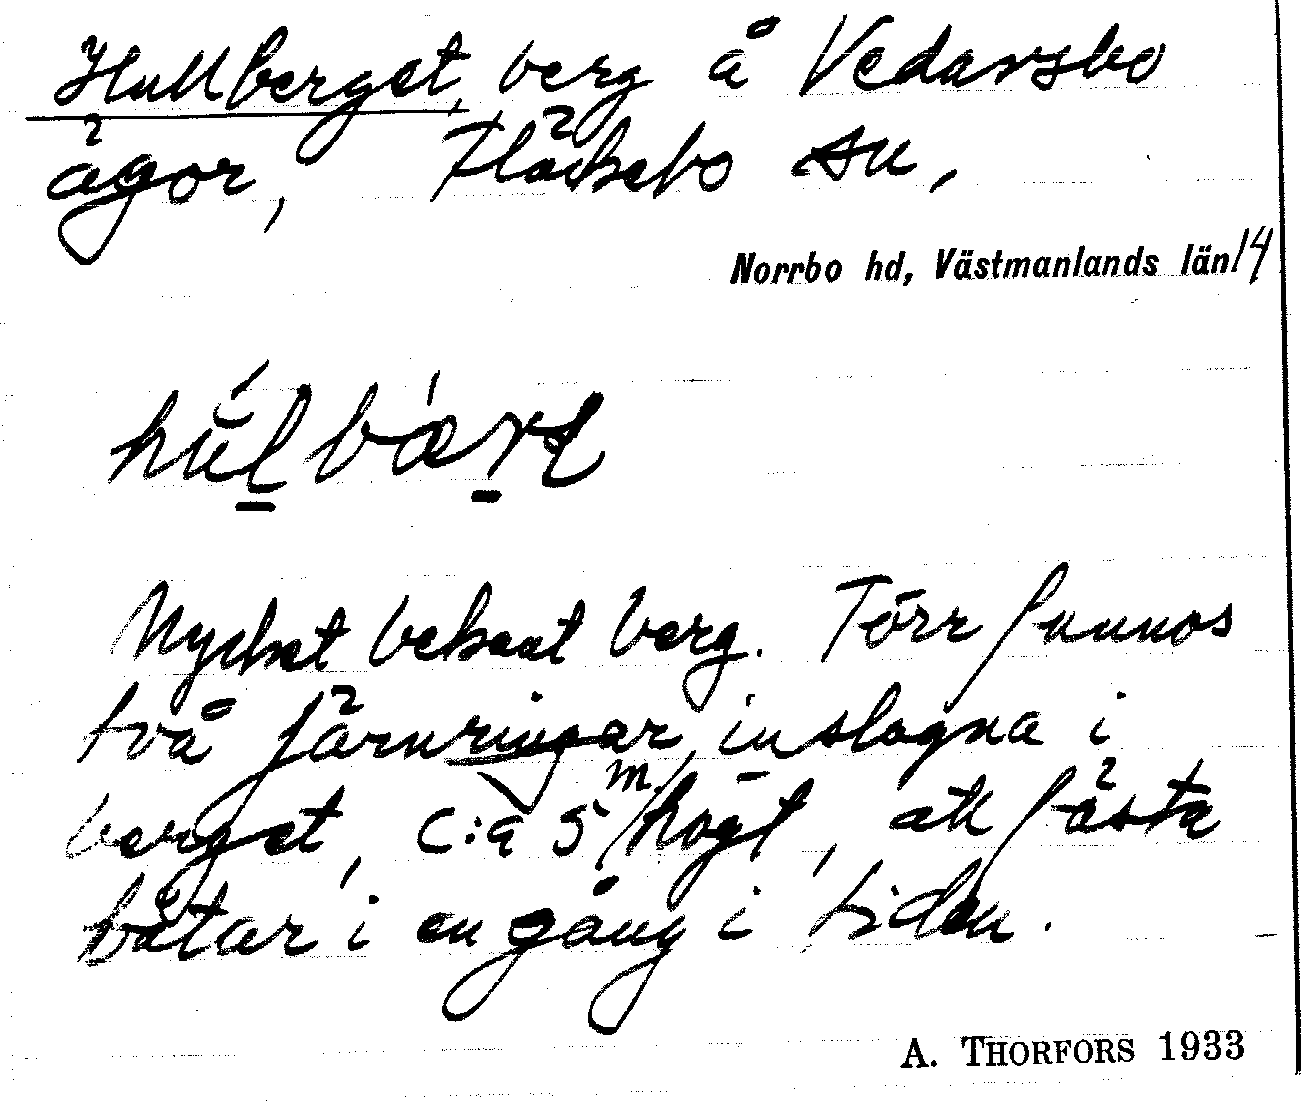 Hullberget, berg å Vedarsbo
ägor, Fläckebo sn,
Norrbo hd, Västmanlands län 14
Mycket bekant berg. Förr funnos
två järnringar inslagna i
berget, c:a 5 m högt, att fästa
båtar i en gång i tiden.
A. THORFORS 1933